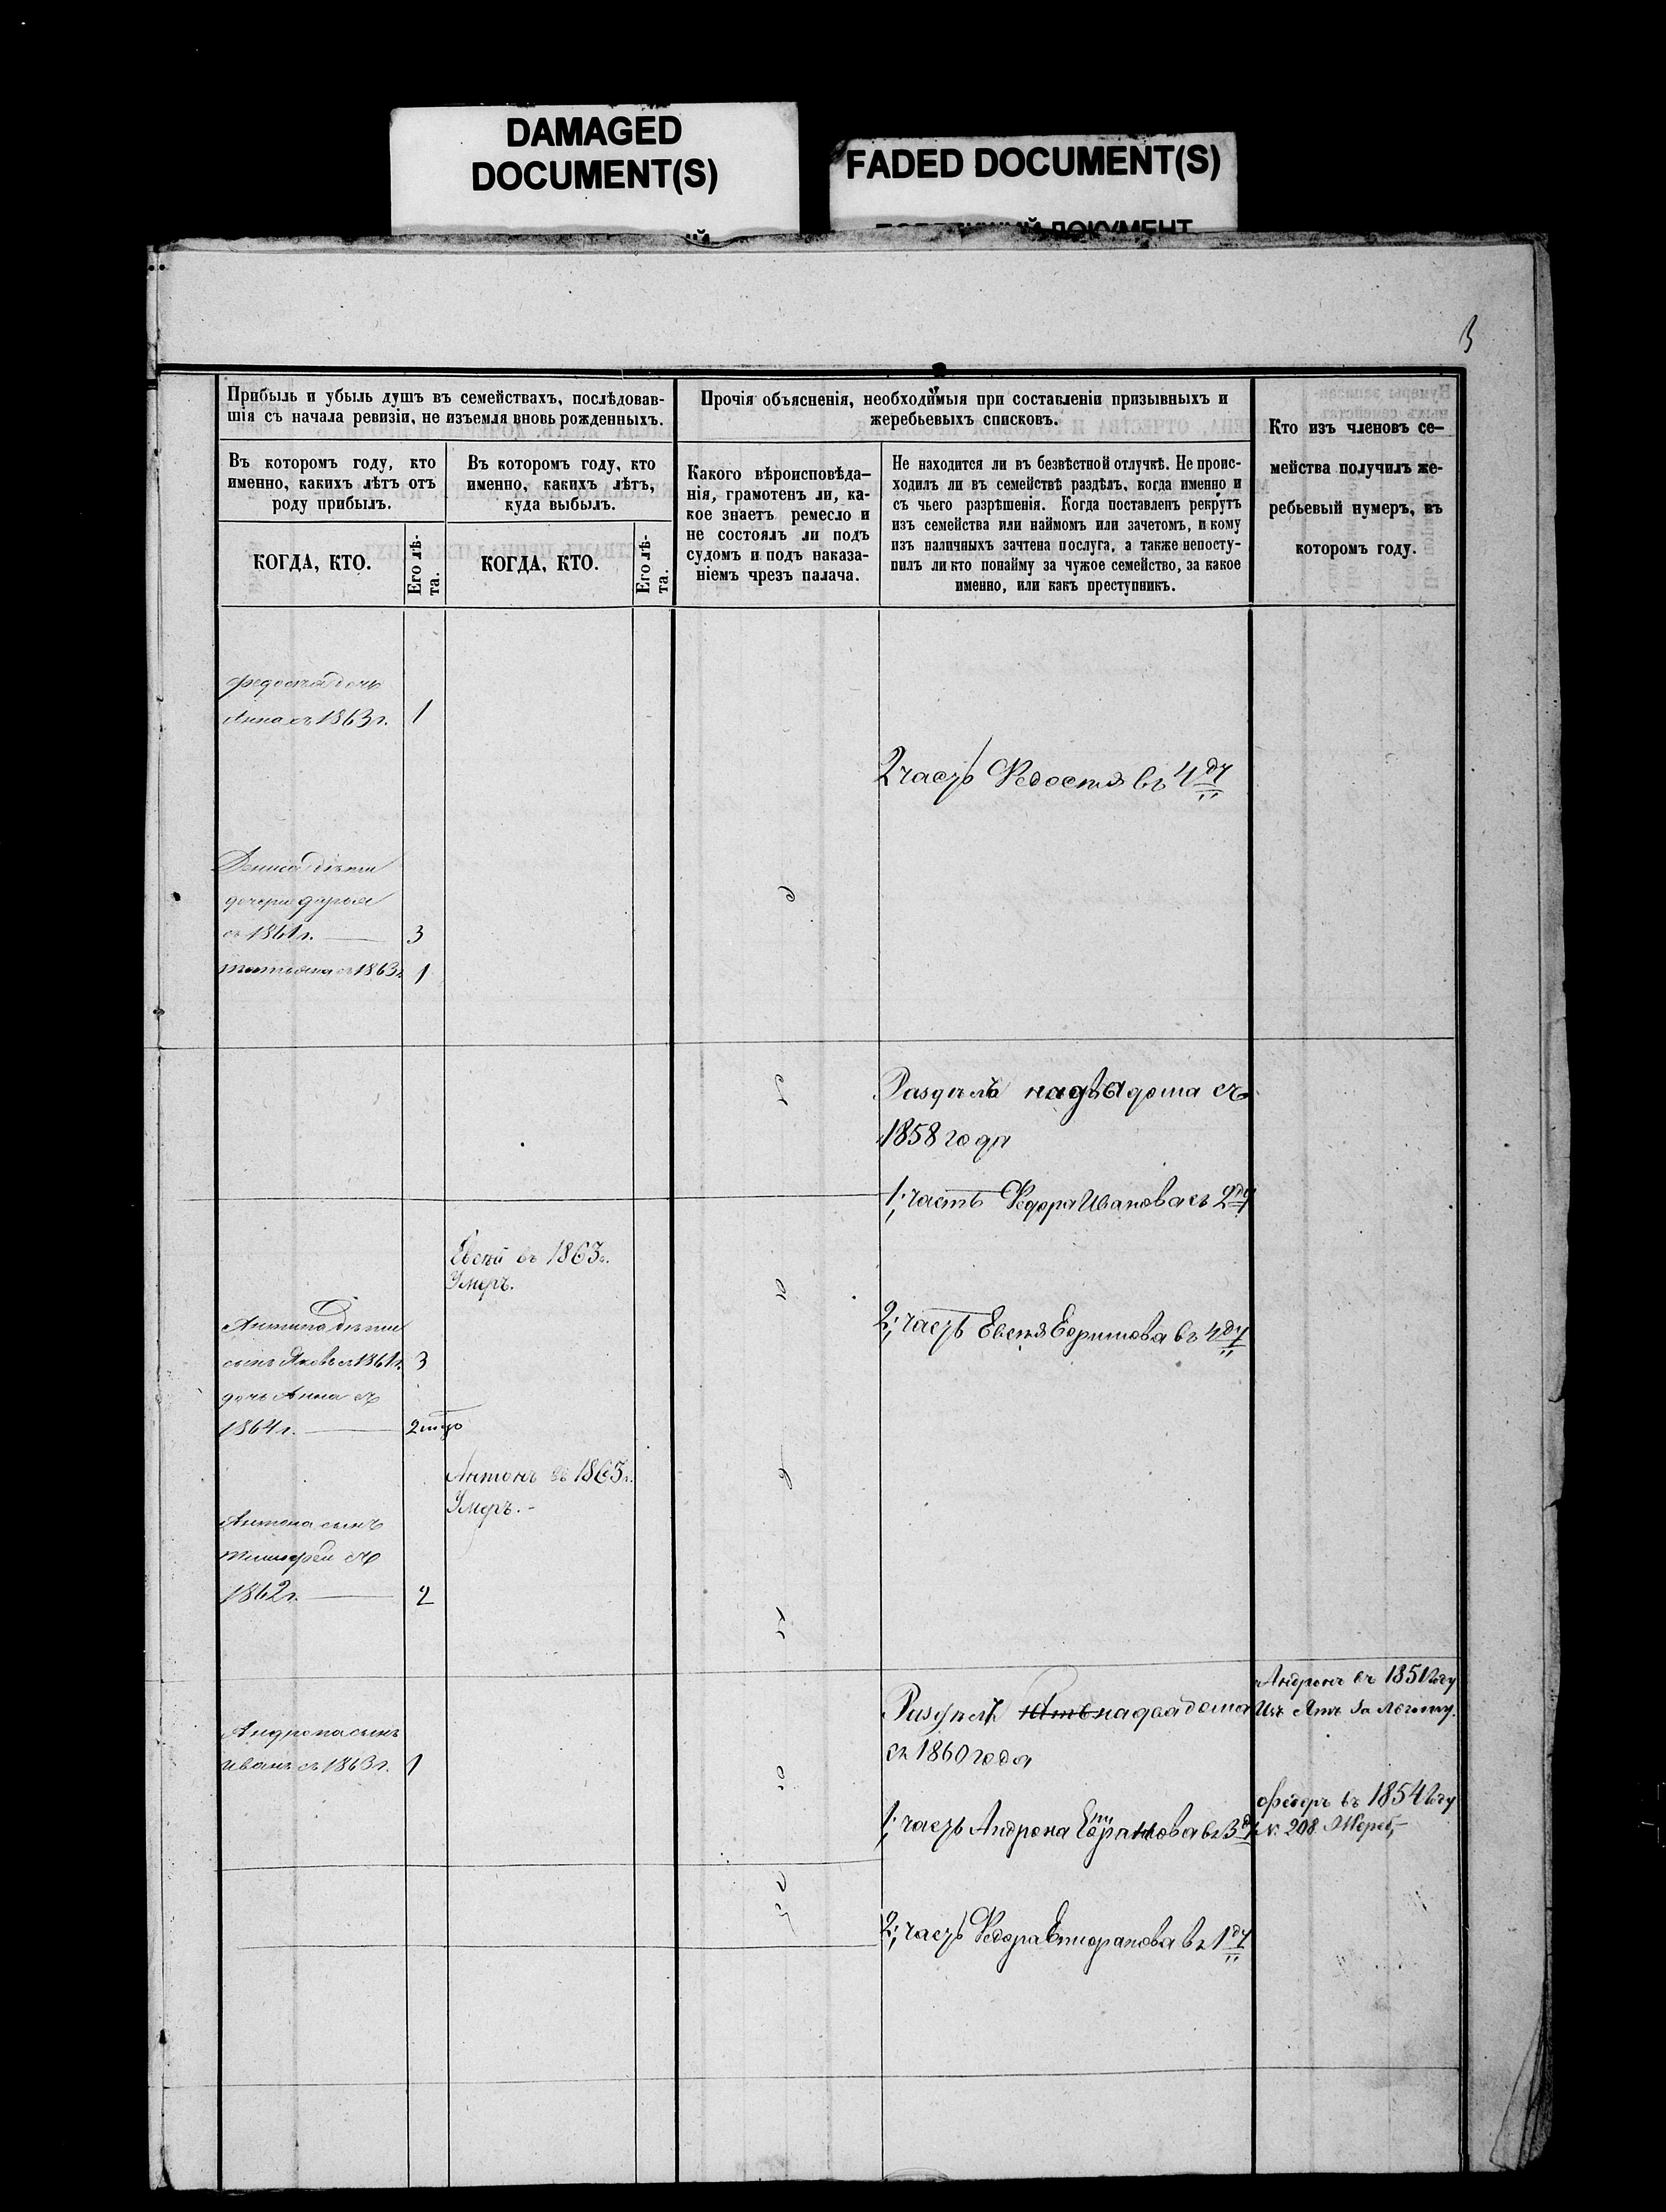 DAMAGED
DOCUMENT(S)
FADED DOCUMENT(S)
3
Прибыль и убыль душъ въ семействахъ, послѣдовав-
шія съ начала ревизіи, не изъемля вновь рожденныхъ.
Въ которомъ году, кто
именно, какихъ лѣтъ отъ
роду прибылъ.
КОГДА, КТО.
Его лѣ-
та.
Въ которомъ году, кто
именно, какихъ лѣтъ,
куда выбылъ.
КОГДА, КТО.
Его лѣ-
та.
Прочія объясненія, необходимыя при составленіи призывныхъ и
жеребьевыхъ списковъ.
Какого вѣроисповѣда-
нія, грамотенъ ли, ка-
кое знаетъ ремесло и
не состоялъ ли подъ
судомъ и подъ наказа-
ніемъ чрезъ палача.
Не находится ли въ безвѣстной отлучкѣ. Не проис-
ходилъ ли въ семействѣ раздѣлъ, когда именно и
съ чьего разрѣшенія. Когда поставленъ рекрутъ
изъ семейства или наймомъ или зачетомъ, и кому
изъ наличныхъ зачтена послуга, а также непосту-
пилъ ли кто понайму за чужое семейство, за какое
именно, или какъ преступникъ.
Кто изъ членовъ се-
мейства получилъ же-
ребьевый нумеръ, въ
которомъ году.
дочь
Анна съ 1863 г. 1
2 часть въ 4
Дениса дѣти
дочери дарья
съ 1861 г. 3
татьяна съ 1863 г. 1
Раздѣлъ на два дома съ
1858 года
1; часть Федора Иванова съ 2
Евсѣй въ 1863 г.
Умеръ.
2; часть Евсѣя въ 4
Антипа дѣти
сынъ Яковъ съ 1861 г. 3
дочь Анна съ
1864 г. 2
Антонъ въ 1863 г.
Умеръ.
Антона сынъ
тимофей съ
1862 г. 2
Андронъ въ 1851 году
Раздѣлъ на два дома
съ 1860 года
Андрона сынъ
иванъ съ 1863 г. 1
1; часть Андрона
федоръ въ 1854 году
№ 208 Жереб.
2; часть Федора въ 1